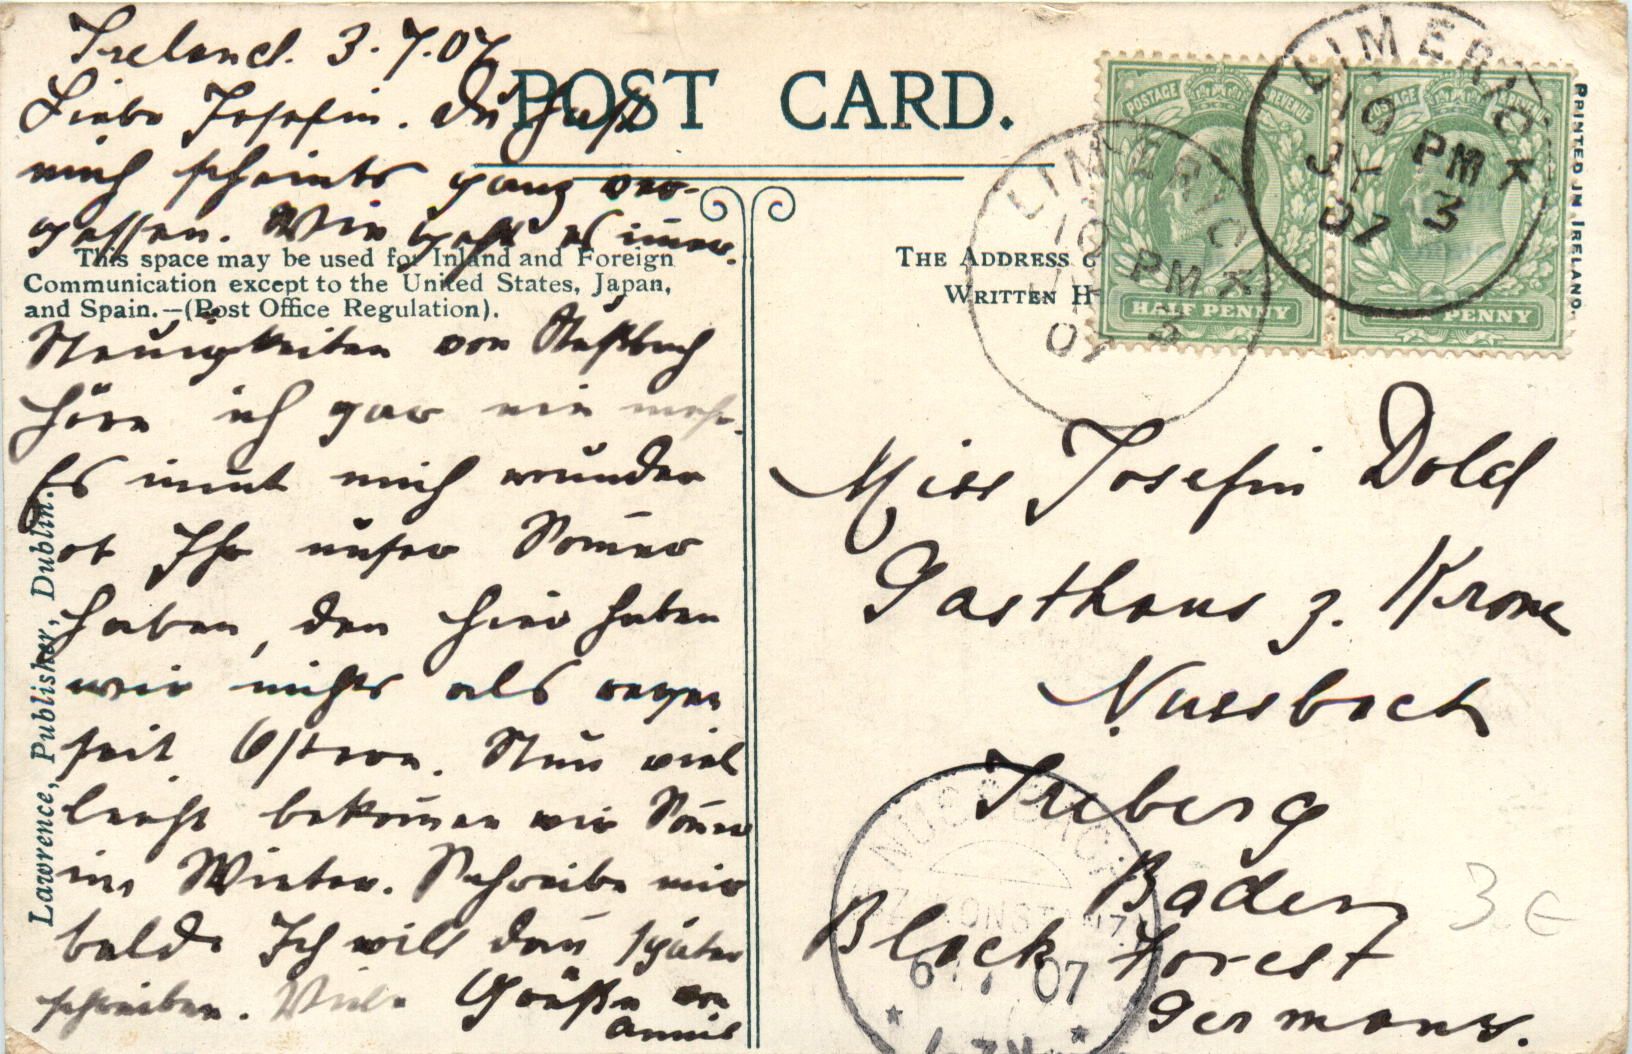 Ireland. 3.7.07
Liebe Josefin. Du hast
mich scheints ganz ver-
gessen. Wie geht es im̅er.
Neuigkeiten von Nußbach
höre ich gar nie mehr.
Es nim̅t mich wunder
ob Ihr unser Som̅er
haben, den hier haben
wir nichts als regen
seit Ostern. Nun viel
leicht bekom̅en wir Som̅er
im Winter. Schreibe mir
bald. Ich will dan̅ später
schreiben. Viele Grüße von
Annie
POST CARD.
This space may be used for Inland and Foreign
Communication except to the United States, Japan,
and Spain.—(Post Office Regulation).
Lawrence, Publisher, Dublin.
THE ADDRESS
WRITTEN
PRINTED IN IRELAND.
POSTAGE REVENUE
HALF PENNY
POSTAGE REVENUE
PENNY
LIMERICK
10 PM
JY 3
07
LIMERICK
10 PM
3
07
Miss Josefin Dold
Gasthaus z. Krone
Nussbach
Triberg
Baden
Black Forest
Germany.
NUSSBACH
KONSTANZ
6 7 07
3 €